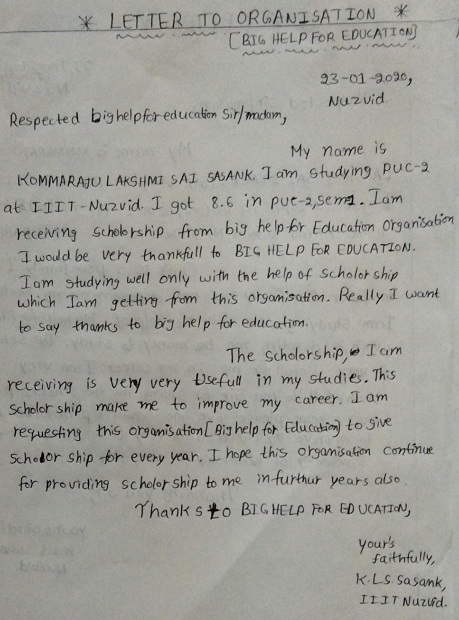 * LETTER TO ORGANISATION *
[BIG HELP FOR EDUCATION]
23-01-2020,
Nuzvid
Respected bighelpforeducation Sir/madam,
My name is
KOMMARAJU LAKSHMI SAI SASANK. I am studying PUC-2
at IIIT-Nuzvid. I got 8.6 in puc-2, sem1. I am
receiving scholorship from big help for Education Organisation
I would be very thankfull to BIG HELP FOR EDUCATION.
I am studying well only with the help of scholor ship
which I am getting from this organisation. Really I want
to say thanks to big help for education.
The scholorship, I am
receiving is very very Usefull in my studies. This
scholor ship make me to improve my career. I am
requesting this organisation [Bighelp for Education] to give
scholor ship for every year. I hope this organisation continue
for providing scholor ship to me in furthur years also.
Thanks to BIG HELP FOR EDUCATION,
your's
faithfully,
K.L.S Sasank,
IIIT Nuzvid.